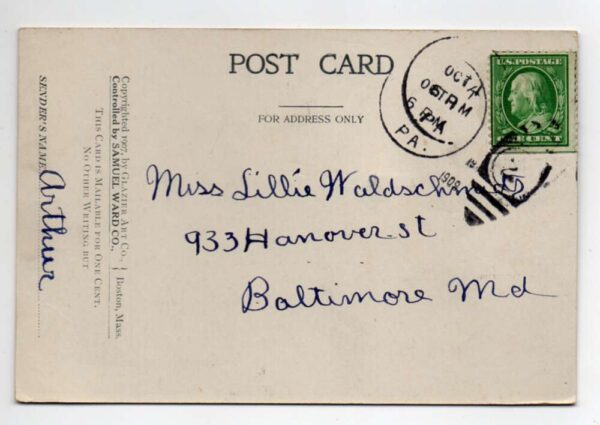 POST CARD
FOR ADDRESS ONLY
U.S. POSTAGE
ONE CENT
OCT 4
6 PM
PA.
1909
Miss Lillie Waldschmidt
933 Hanover st
Baltimore Md
Copyrighted 1907, by GLAZIER ART CO., } Boston, Mass.
Controlled by SAMUEL WARD CO.,
THIS CARD IS MAILABLE FOR ONE CENT.
NO OTHER WRITING BUT
SENDER'S NAME
Arthur